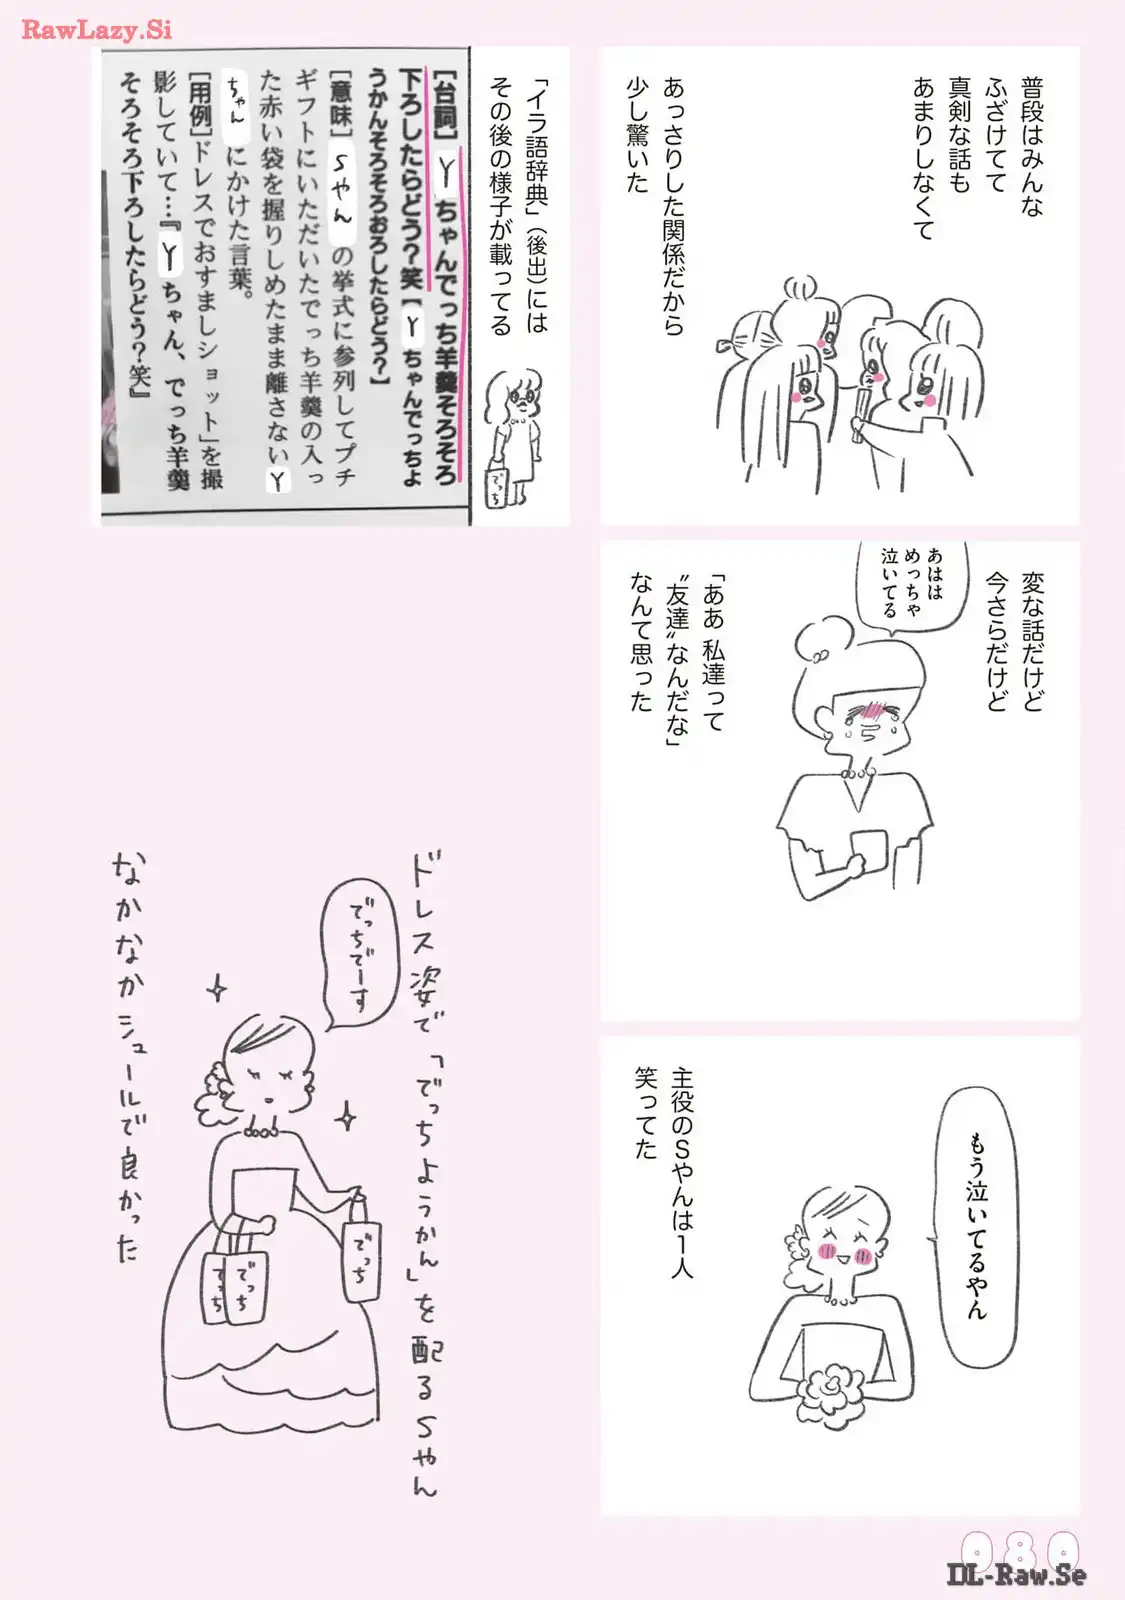 RawLazy.Si
普段はみんな
ふざけてて
真剣な話も
あまりしなくて
あっさりした関係だから
少し驚いた
変な話だけど
今さらだけど
あはは
めっちゃ
泣いてる
「ああ 私達って
〝友達〟なんだな」
なんて思った
もう泣いてるやん
主役のSやんは1人
笑ってた
「イラ語辞典」(後出)には
その後の様子が載ってる
でっち
[台詞]Yちゃんでっち羊羹そろそろ
下ろしたらどう?笑[Yちゃんでっちよ
うかんそろそろおろしたらどう?]
[意味]Sやんの挙式に参列してプチ
ギフトにいただいたでっち羊羹の入っ
た赤い袋を握りしめたまま離さないY
ちゃんにかけた言葉。
[用例]ドレスでおすましショット」を撮
影していて…『Yちゃん、でっち羊羹
そろそろ下ろしたらどう?笑』
ドレス姿で「でっちようかん」を配るSやん
でっちでーす
でっち
でっち
でっち
なかなかシュールで良かった
080
DL-Raw.Se